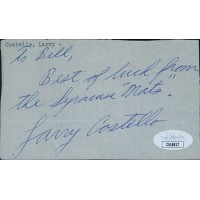 Costello, Larry
To Bill,
Best of luck from
the Syracuse "Nats".
Larry Costello
JSA